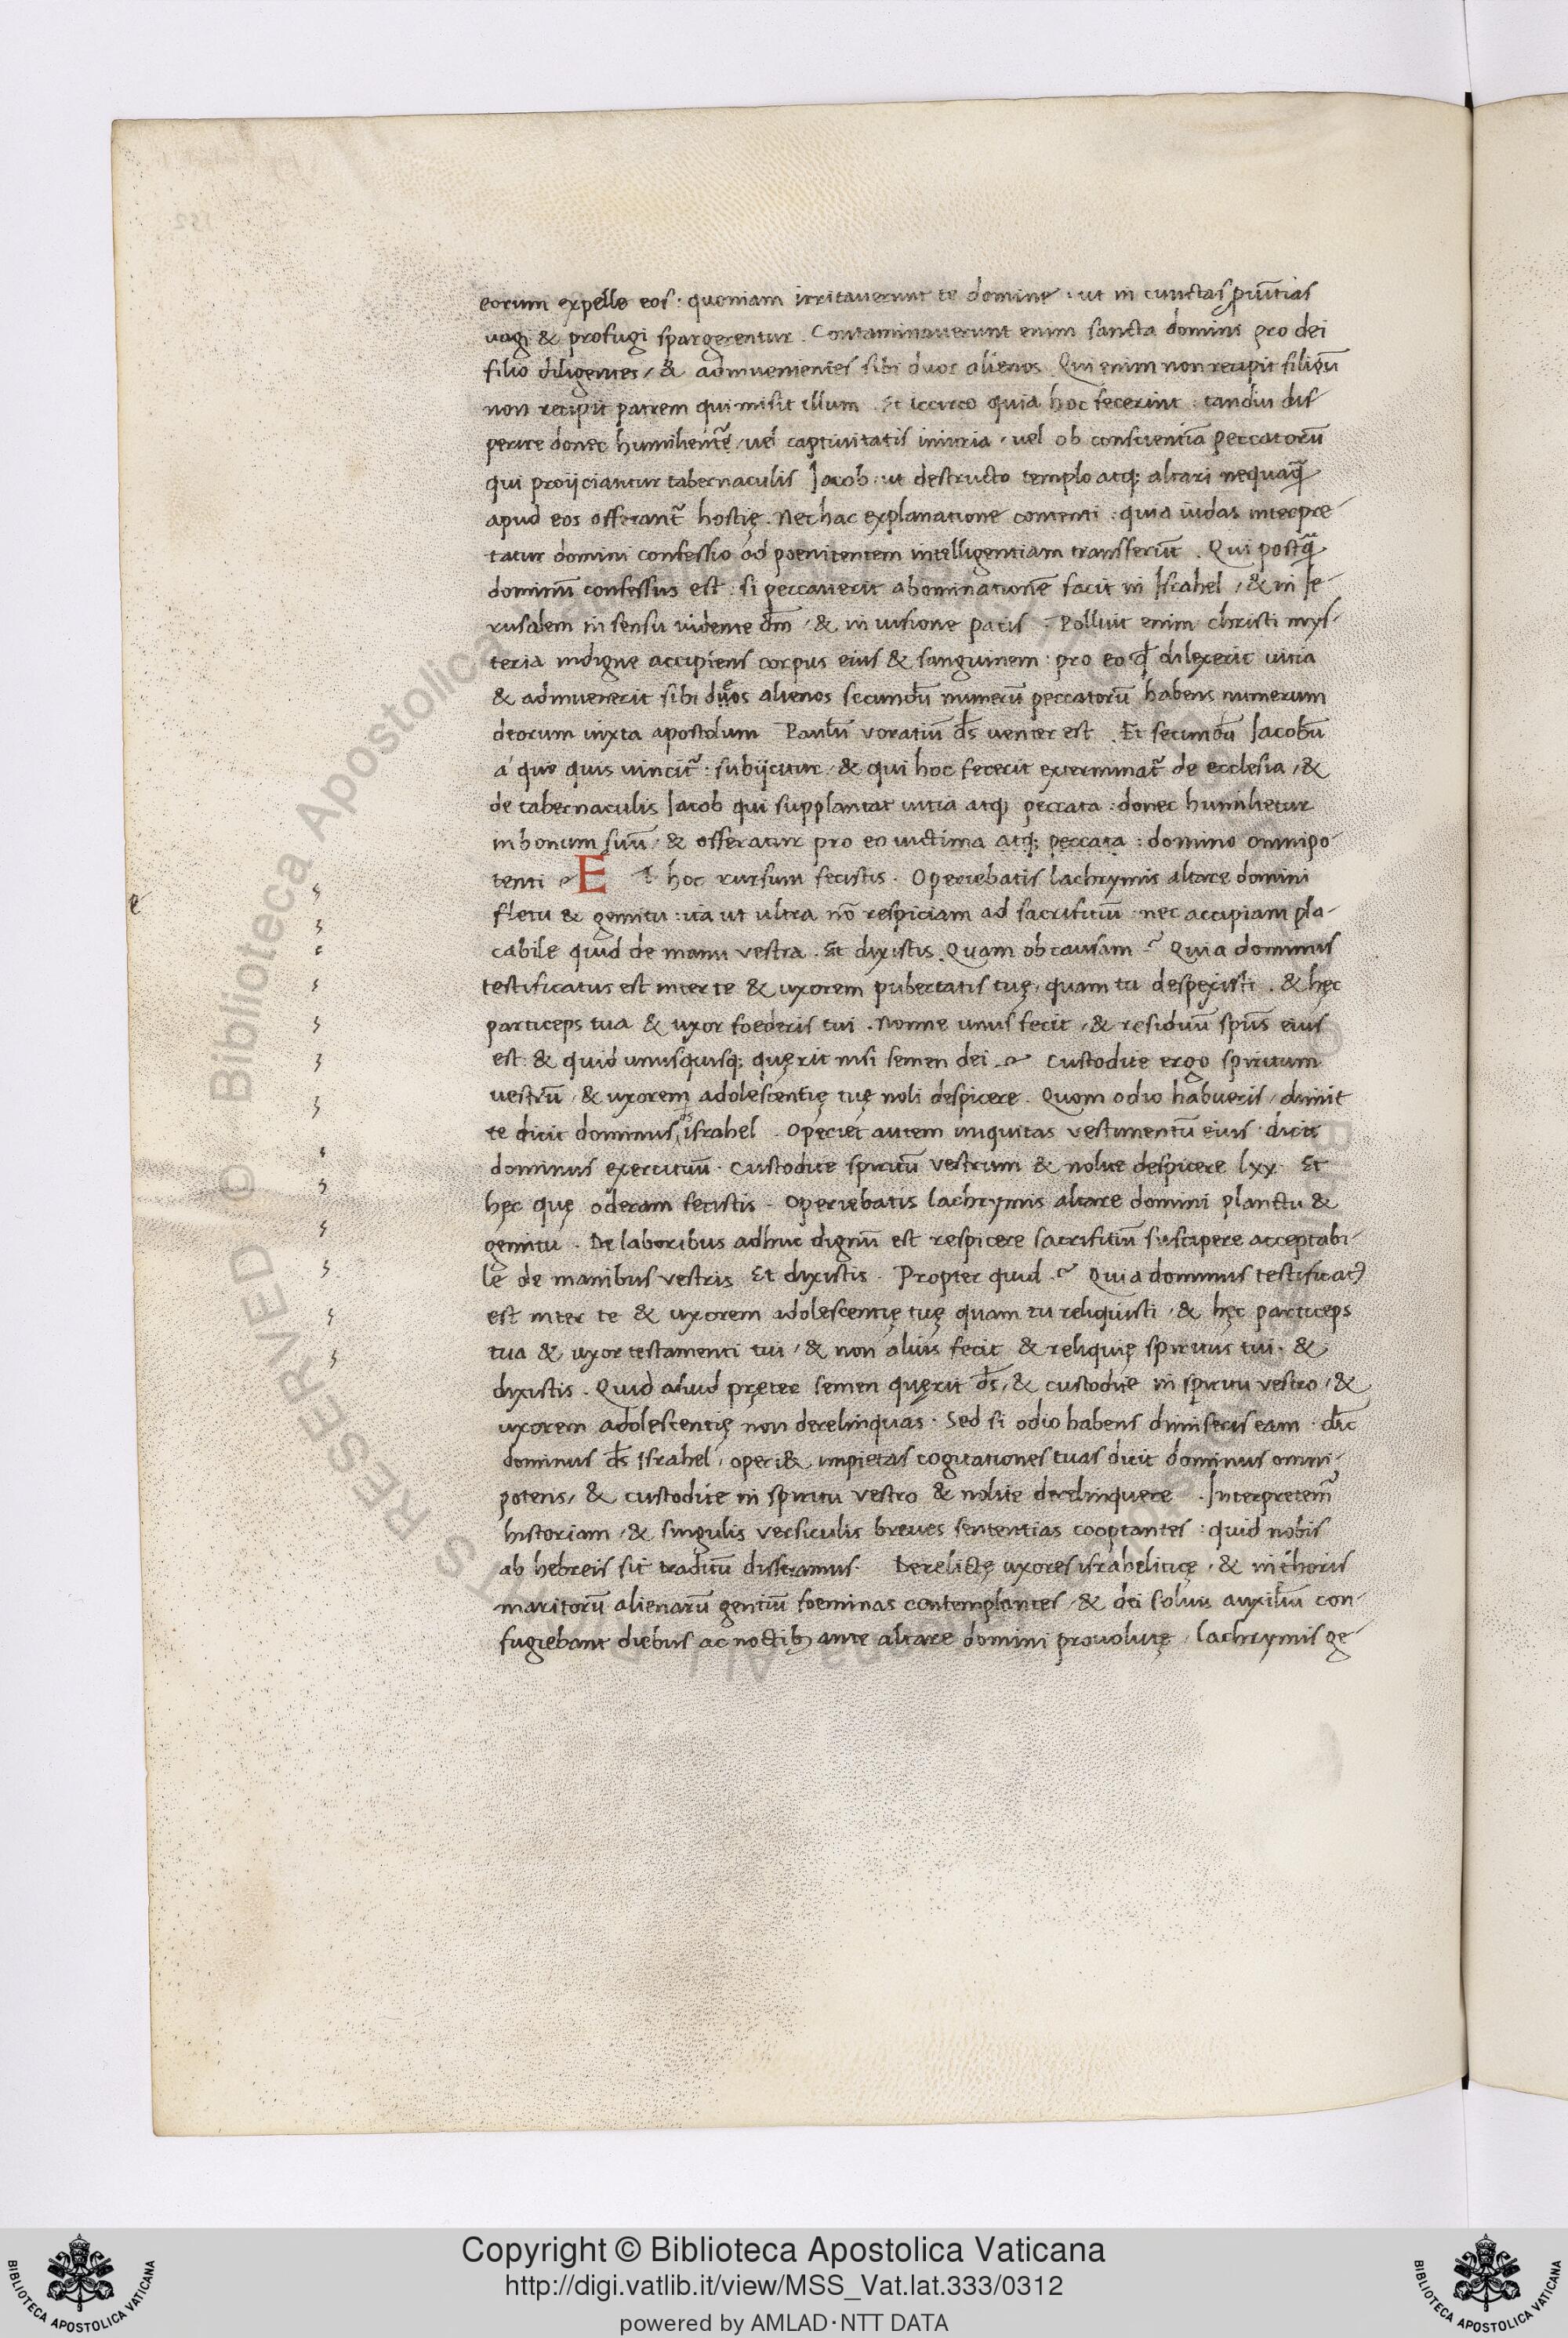 eorum expelle eos · quoniam irritauerunt te domine : ut in cunctas ꝓuītias
uagi & profugi spargerentur . Contaminauerunt enim sancta domini pro dei
filio diligentes / & adinuenientes sibi duos alienos . Qui enim non recipit filiuū
non recipit patrem qui misit illum . Et iccirco quia hoc fecerint : tandiu dis
perite donec humilient᷑ / uel captiuitatis iniuria / uel ob conscientiā peccatorū
qui proijciantur tabernaculis Jacob : ut destructo templo atq; altari nequaq̄
apud eos offerant᷑ hostię . Nec hac explanatione contenti : quia iudas interpre-
tatur domini confessio ad poenitentem intelligentiam transferūt . Qui postq̄
dominū confessus est : si peccauerit abominationē facit in Israhel / & in Je-
rusalem in sensu uidente dm̄ / & in uisione pacis . Polluit enim christi mys-
teria indigne accipiens corpus eius & sanguinem : pro eo qđ dilexerit uitia
& adinuenerit sibi duos alienos secundū numerū peccatorū habens numerum
deorum iuxta apostolum Paulū voratiū ds̄ uenter est . Et secundū Jacobū
a quo quis uincit᷑ : subijcitur / & qui hoc fecerit exterminat᷑ de ecclesia / &
de tabernaculis Jacob qui supplantat uitia atq; peccata : donec humilietur
in bonum suū / & offeratur pro eo uictima atq; peccata : domino omnipo-
tenti . E t hoc rursum fecistis . Operiebatis lachrymis altare domini
fletu & gemitu : ita ut ultra nō respiciam ad sacrificiū : nec accipiam pla-
cabile quid de manu vestra . Et dixistis . Quam ob causam ? Quia dominus
testificatus est inter te & uxorem pubertatis tuę , quam tu despexisti . & hęc
particeps tua & uxor foederis tui . Nonne unus fecit / & residuū spūs eius
est & quid unusquisq; quęrit nisi semen dei ? Custodite ergo spiritum
vestrū / & uxorem adolescentię tuę noli despicere . Quom odio habueris / dimit
te dicit dominus ds israhel . Operiet autem iniquitas vestimentū eius dicit
dominus exercituū . Custodite spiritū vestrum & nolite despicere lxx . Et
hęc quę oderam fecistis . Operiebatis lachrymis altare domini planctu &
gemitu . De laboribus adhuc dignū est respicere sacrifitiū suscipere acceptabi-
le de manibus vestris Et dixistis . Propter quid ? Quia dominus testificatꝰ
est inter te & uxorem adolescentię tuę quam tu reliquisti / & hęc particeps
tua & uxor testamenti tui / & non alius fecit & reliquię spiritus tui . &
dixistis . Quid aliud pręter semen quęrit ds̄ / & custodite in spiritu vestro / &
uxorem adolescentię non derelinquas . Sed si odio habens dimiseris eam . dic̄
dominus ds̄ Israhel / operi& impietas cogitationes tuas dicit dominus omni-
potens / & custodite in spiritu vestro & nolite derelinquere . Interpretem᷑
historiam / & singulis versiculis breues sententias cooptantes : quid nobis
ab hebreis sit traditū disseramus . Derelictę uxores israheliticę / & in thoris
maritorū alienarū gentiū foeminas contemplantes / & dei solius auxiliū con-
fugiebant diebus ac noctibꝫ ante altare domini prouolutę / lachrymis ge-
e
Copyright © Biblioteca Apostolica Vaticana
http://digi.vatlib.it/view/MSS_Vat.lat.333/0312
powered by AMLAD·NTT DATA
BIBLIOTECA APOSTOLICA VATICANA
BIBLIOTECA APOSTOLICA VATICANA